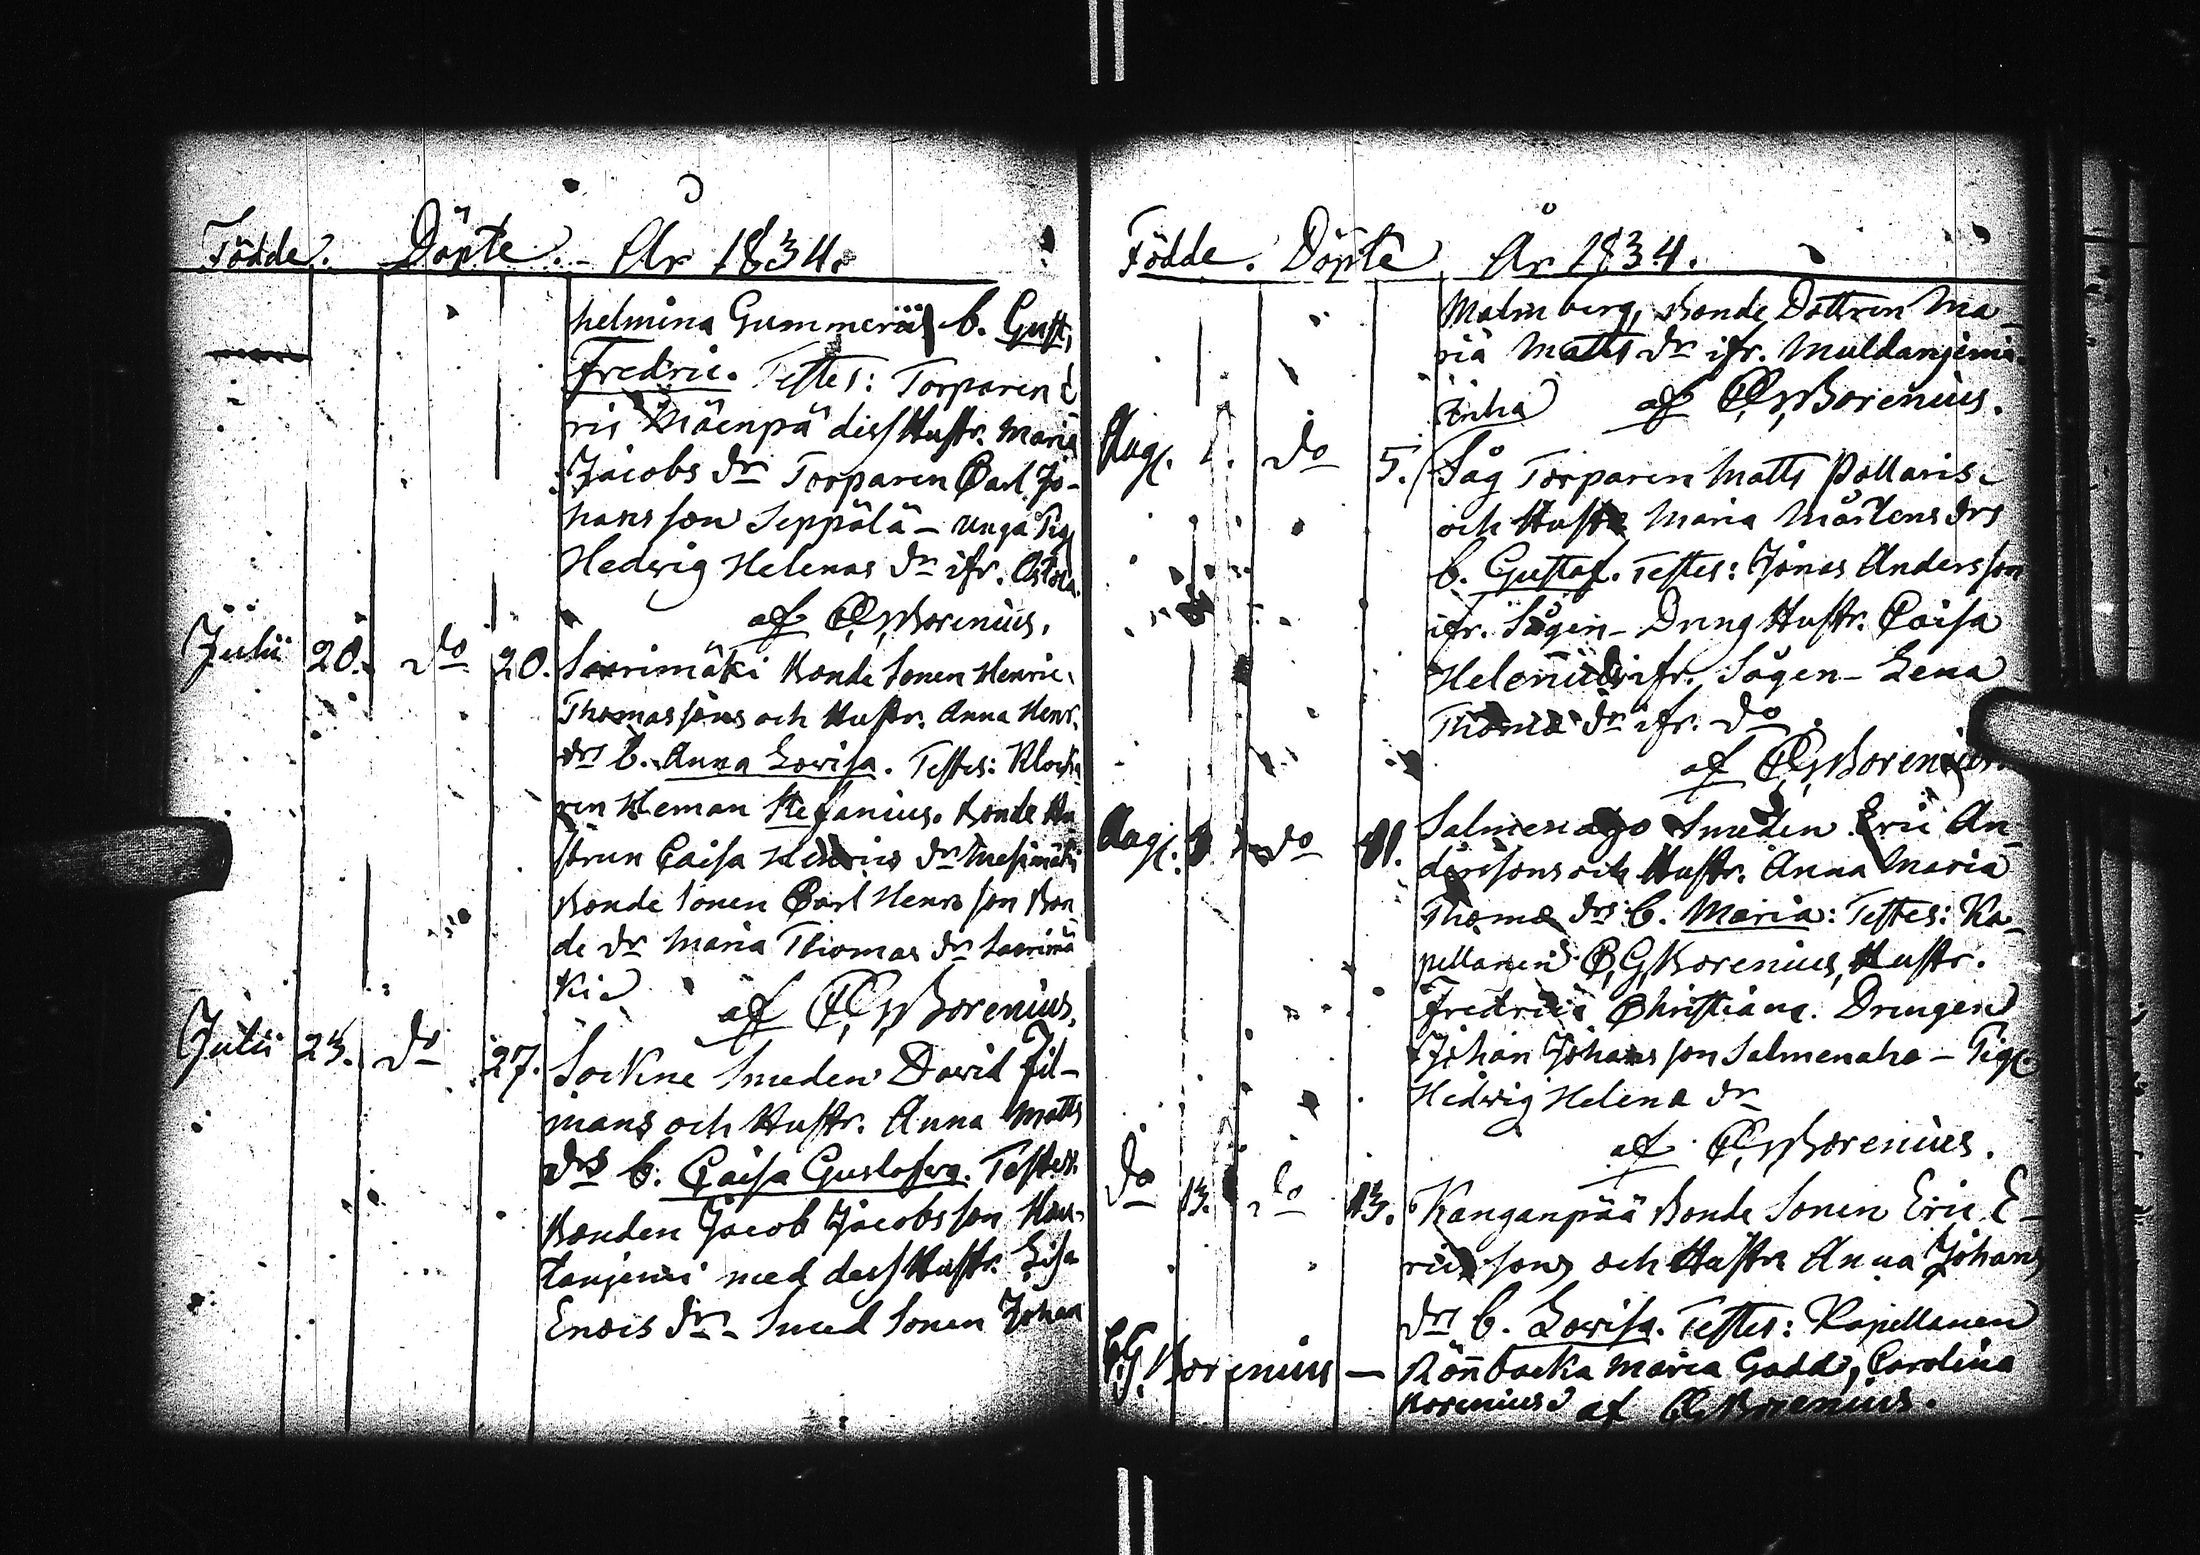 Födde. Döpte. År 1834.
helmina Gummeri b. Gust,
Fredric. Testes: Torparen E
ris Mäenpä dess Hustr. Maria
Jacobs dr Torparen Carl Jo-
hansson Seppälä - unga Pig
Hedvig Helenas dr ifr.
af CG Borenius.
Julii 20. do 20. Saarimäki Bonde Sonen Henric
Thomassons och Hustr. Anna Henr.
drs b. Anna Lovisa. Testes: Klocka
ren Heman Stefanius. Bonde Hu
strun Caisa Henrics dr Mesimäki
Bonde Sonen Carl Henrs son Bon
de dr Maria Thomas dr Saarimä
ki af CG Borenius.
Julii 23. do 27. Sockne Smeden David Fil-
mans och Hustr. Anna Matts
drs b. Caisa Gustafva. Testes:
Bonden Jacob Jacobsson
med dess Hustr. Lisa
dr - Smed Sonen Johan
Födde. Döpte År 1834.
Malmberg, Bonde Dottren Ma-
ria Matts dr ifr.
af CG Borenius.
Aug. do 5. Såg Torparen Matts Pollaris
och Hustr Maria Mårtens drs
b. Gustaf. Testes: Jonas Andersson
ifr. Sågen - Dräng Hustr. Caisa
ifr. Sågen - Lena
Thomæ dr ifr. do
af CG Borenius.
Aug. do 11. Smeden Eric An-
derssons och Hustr. Anna Maria
Thomæ drs b. Maria: Testes: Ka-
pellanen C,G,Borenius, Hustr.
Fredrica Christiana. Drengen
Johan Johansson Salmenaho - Pig.
Hedvig Helenæ dr
af CG Borenius.
do 13. do 13. Kanganpää Bonde Sonen Eric E-
rics sons och Hustrs Anna Johans
drs b. Lovisa. Testes: Kapellanen
C.G. Borenius - Rönnbacka Maria Gadd, Carolina
Borenius af CG Borenius.